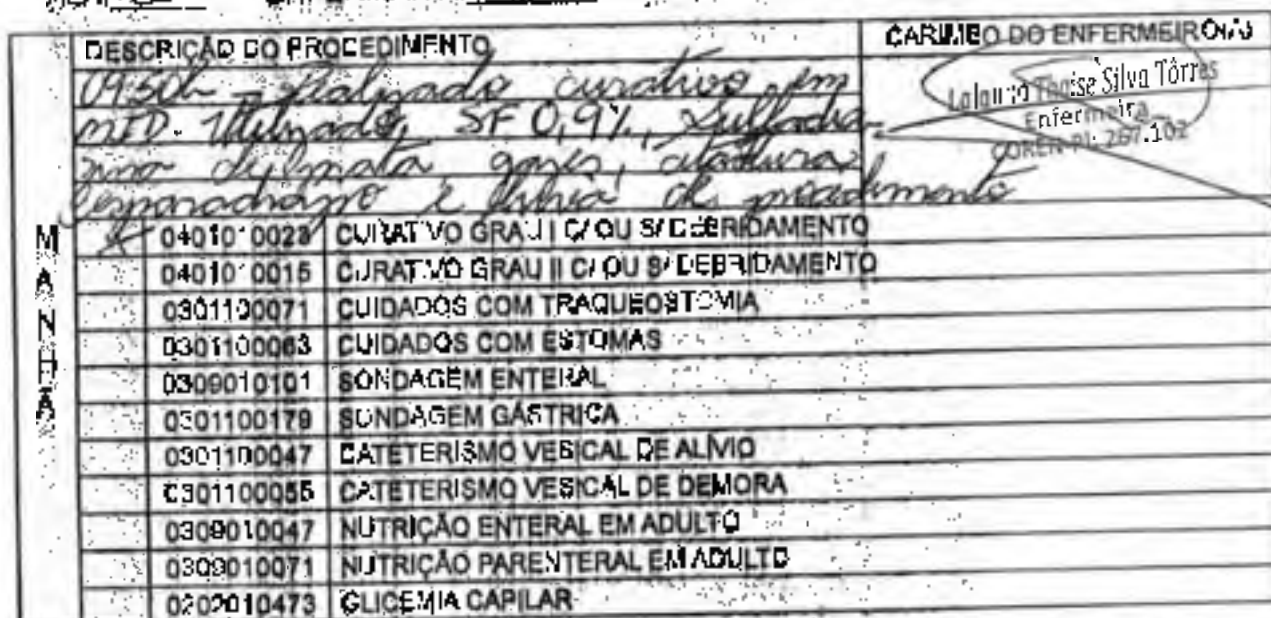 DESCRIÇÃO DO PROCEDIMENTO
CARIMBO DO ENFERMEIRO(A)
09:50h - Realizado curativo em
MID. Utilizado, SF 0,9%, Sulfadia-
zina de prata, gazes, atadura
esparadrapo e luvas de procedimento
Silva Tôrres
Enfermeira
COREN-PI: 267.102
MANHÃ
X 0401010023 CURATIVO GRAU I C/ OU S/ DEBRIDAMENTO
0401010015 CURATIVO GRAU II C/ OU S/ DEBRIDAMENTO
0301100071 CUIDADOS COM TRAQUEOSTOMIA
0301100063 CUIDADOS COM ESTOMAS
0309010101 SONDAGEM ENTERAL
0301100179 SONDAGEM GÁSTRICA
0301100047 CATETERISMO VESICAL DE ALÍVIO
0301100055 CATETERISMO VESICAL DE DEMORA
0309010047 NUTRIÇÃO ENTERAL EM ADULTO
0309010071 NUTRIÇÃO PARENTERAL EM ADULTO
0202010473 GLICEMIA CAPILAR